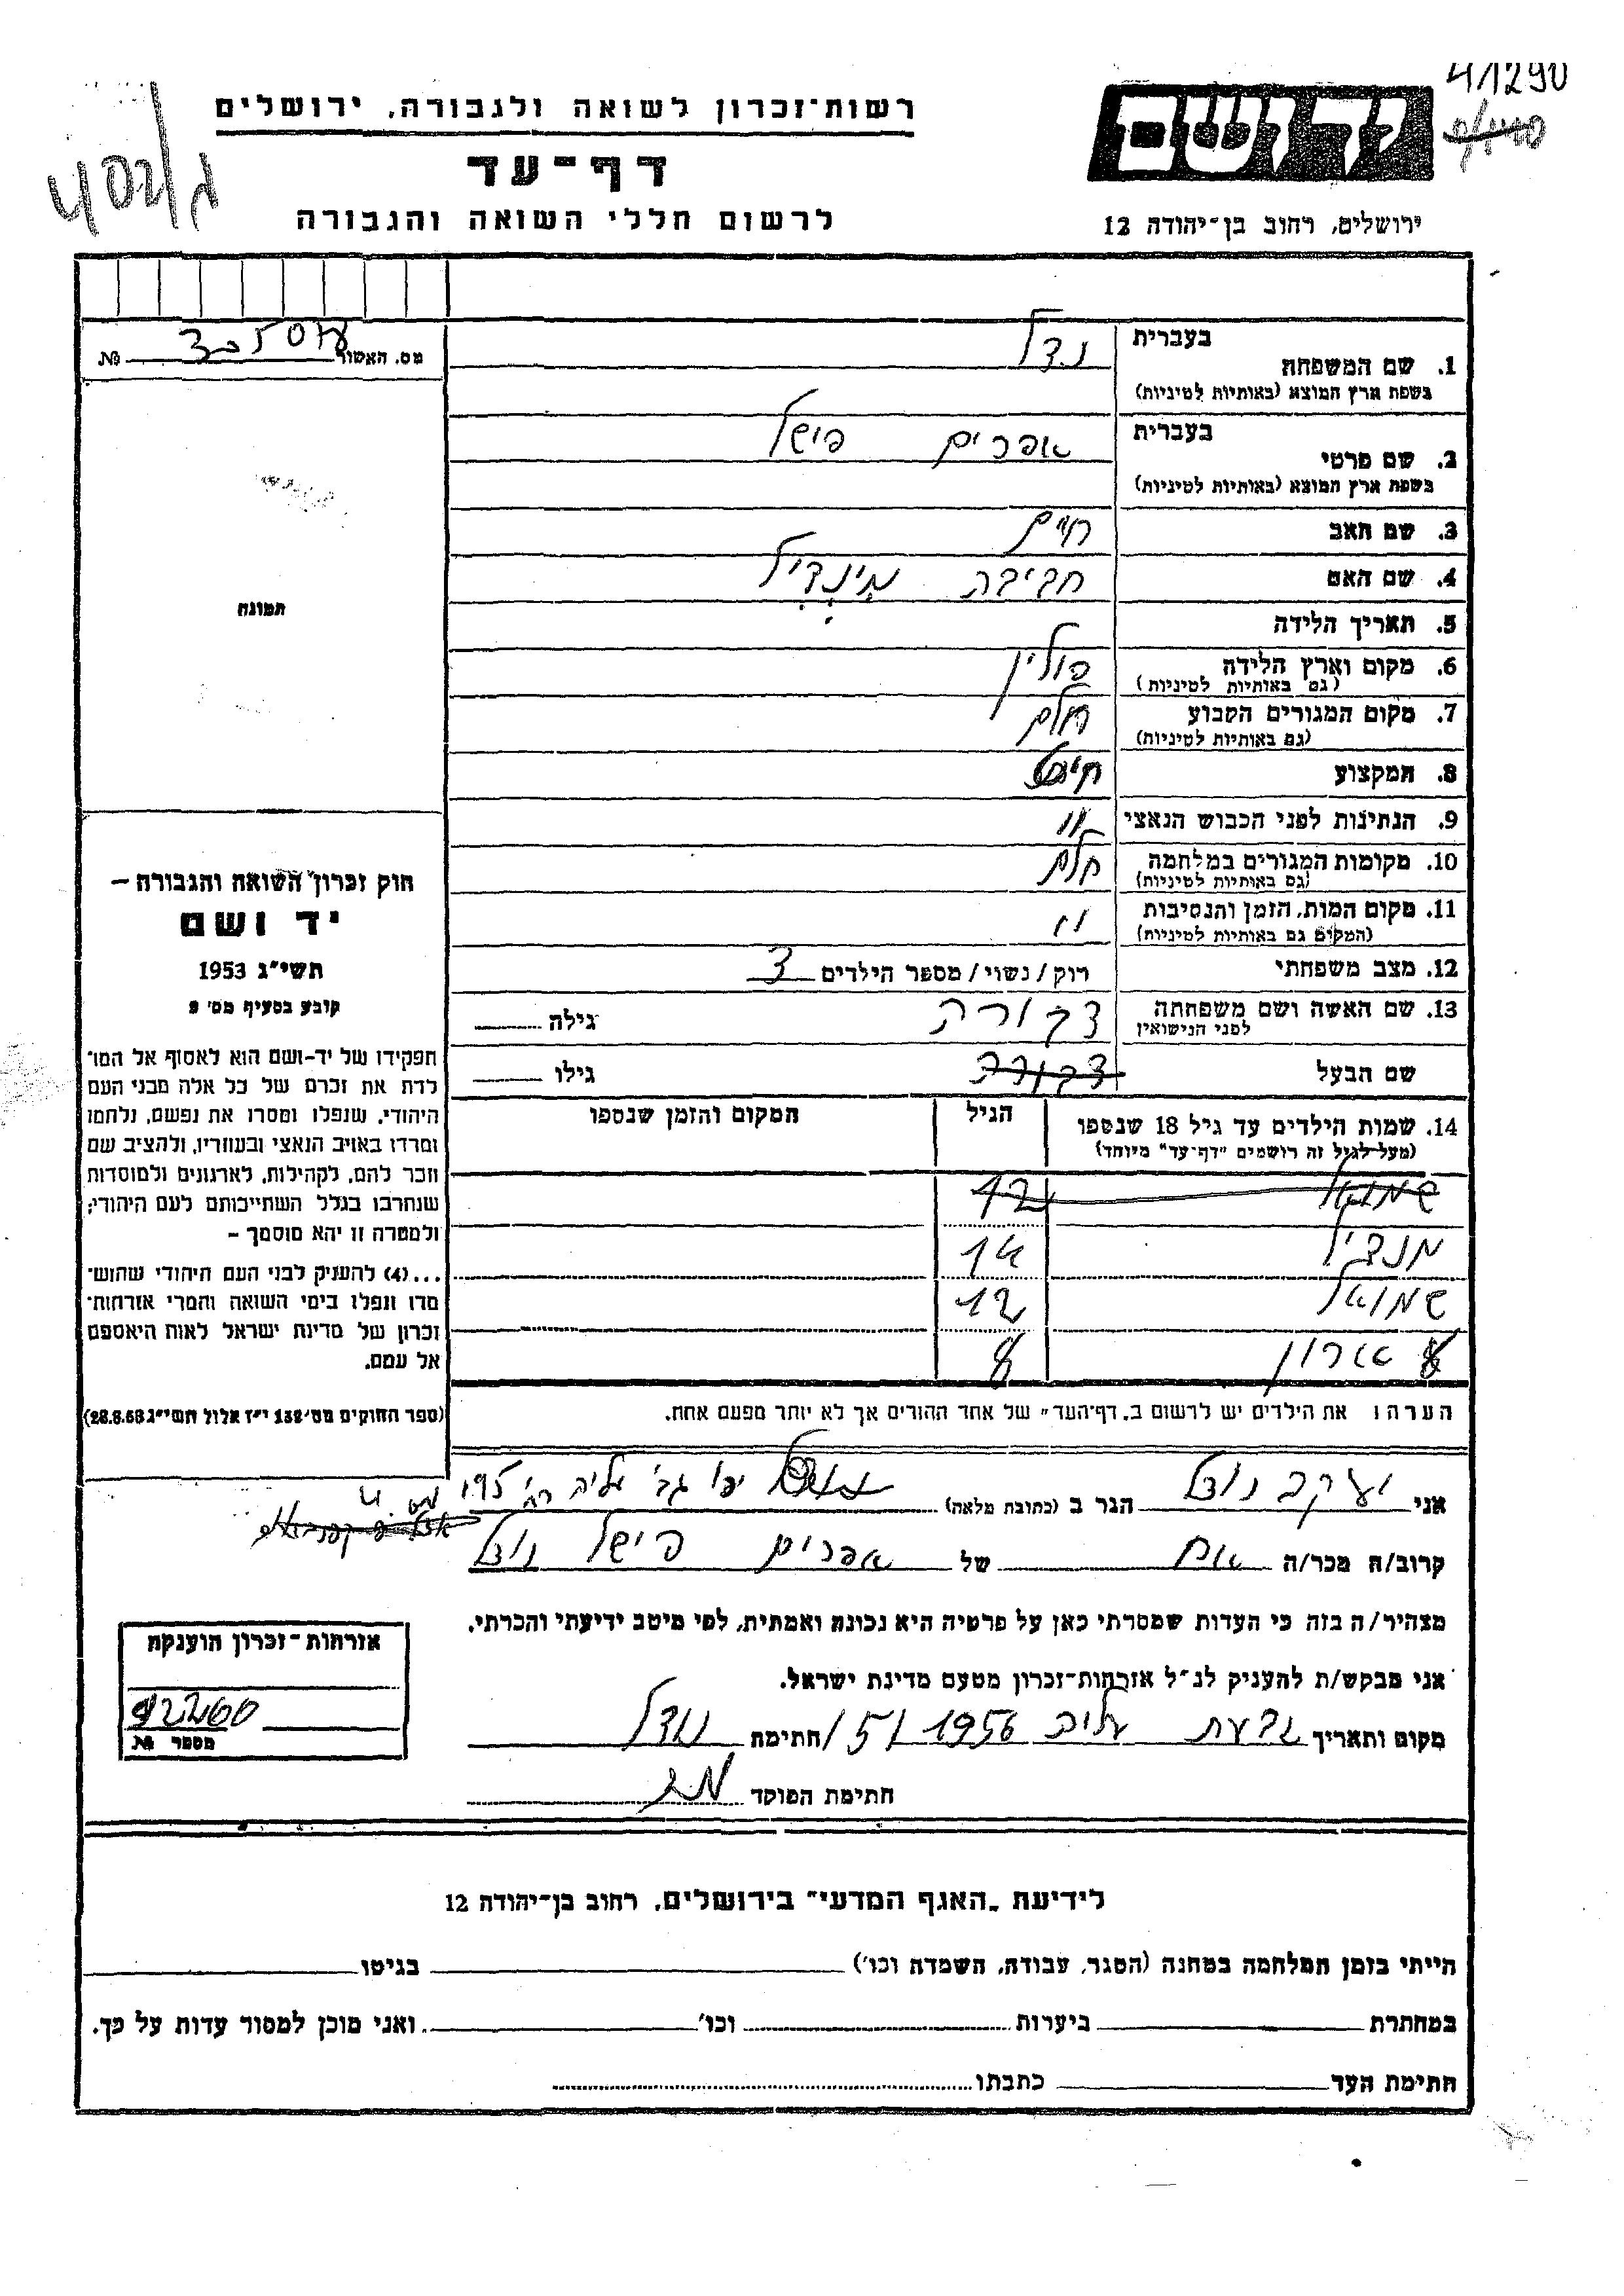 4/1290
רשות-זכרון לשואה ולגבורה, ירושלים
דף-עד
לרשום חללי השואה והגבורה
יד ושם
ירושלים, רחוב בן-יהודה 12
מס. האשור №
תמונה
1. שם המשפחה בעברית נדל
בשפת ארץ המוצא (באותיות לטיניות)
2. שם פרטי בעברית אפרים פישל
בשפת ארץ המוצא (באותיות לטיניות)
3. שם האב חיים
4. שם האם חביבה מינדיל
5. תאריך הלידה
6. מקום וארץ הלידה פולין
(גם באותיות לטיניות)
7. מקום המגורים הקבוע חלם
(גם באותיות לטיניות)
8. המקצוע חיט
9. הנתינות לפני הכבוש הנאצי "
10. מקומות המגורים במלחמה חלם
(גם באותיות לטיניות)
11. מקום המות, הזמן והנסיבות "
(המקום גם באותיות לטיניות)
12. מצב משפחתי רוק/נשוי/מספר הילדים 3
13. שם האשה ושם משפחתה דבורה גילה
לפני הנישואין
שם הבעל דבורה גילו
14. שמות הילדים עד גיל 18 שנספו הגיל המקום והזמן שנספו
(מעל לגיל זה רושמים "דף-עד" מיוחד)
שמואל 12
מנדיל 14
שמואל 12
אהרון 8
הערה: את הילדים יש לרשום ב"דף-העד" של אחד ההורים אך לא יותר מפעם אחת.
חוק זכרון השואה והגבורה –
יד ושם
תשי"ג 1953
קובע בסעיף מס' 2
תפקידו של יד-ושם הוא לאסוף אל המו־
לדת את זכרם של כל אלה מבני העם
היהודי, שנפלו ומסרו את נפשם, נלחמו
ומרדו באויב הנאצי ובעוזריו, ולהציב שם
וזכר להם, לקהילות, לארגונים ולמוסדות
שנחרבו בגלל השתייכותם לעם היהודי;
ולמטרה זו יהא מוסמך –
...(4) להעניק לבני העם היהודי שהוש־
מדו ונפלו בימי השואה והמרי אזרחות־
זכרון של מדינת ישראל לאות היאספם
אל עמם.
(ספר החוקים מס' 132 י"ז אלול תשי"ג 28.8.53)
אני יעקב נודל הגר ב (כתובת מלאה) יפו גב' עליה 195
קרוב/ה מכר/ה אח של אפרים פישל נודל
מצהיר/ה בזה כי העדות שמסרתי כאן על פרטיה היא נכונה ואמתית, לפי מיטב ידיעתי והכרתי.
אני מבקש/ת להעניק לנ"ל אזרחות-זכרון מטעם מדינת ישראל.
מקום ותאריך גבעת עליה 1956 /5/ חתימה נודל
חתימת הפוקד
אזרחות-זכרון הוענקה
92260
מספר №
לידיעת "האגף המדעי" בירושלים, רחוב בן-יהודה 12
הייתי בזמן המלחמה במחנה (הסגר, עבודה, השמדה וכו') בגיטו
במחתרת ביערות וכו' ואני מוכן למסור עדות על כך.
חתימת העד כתבתו